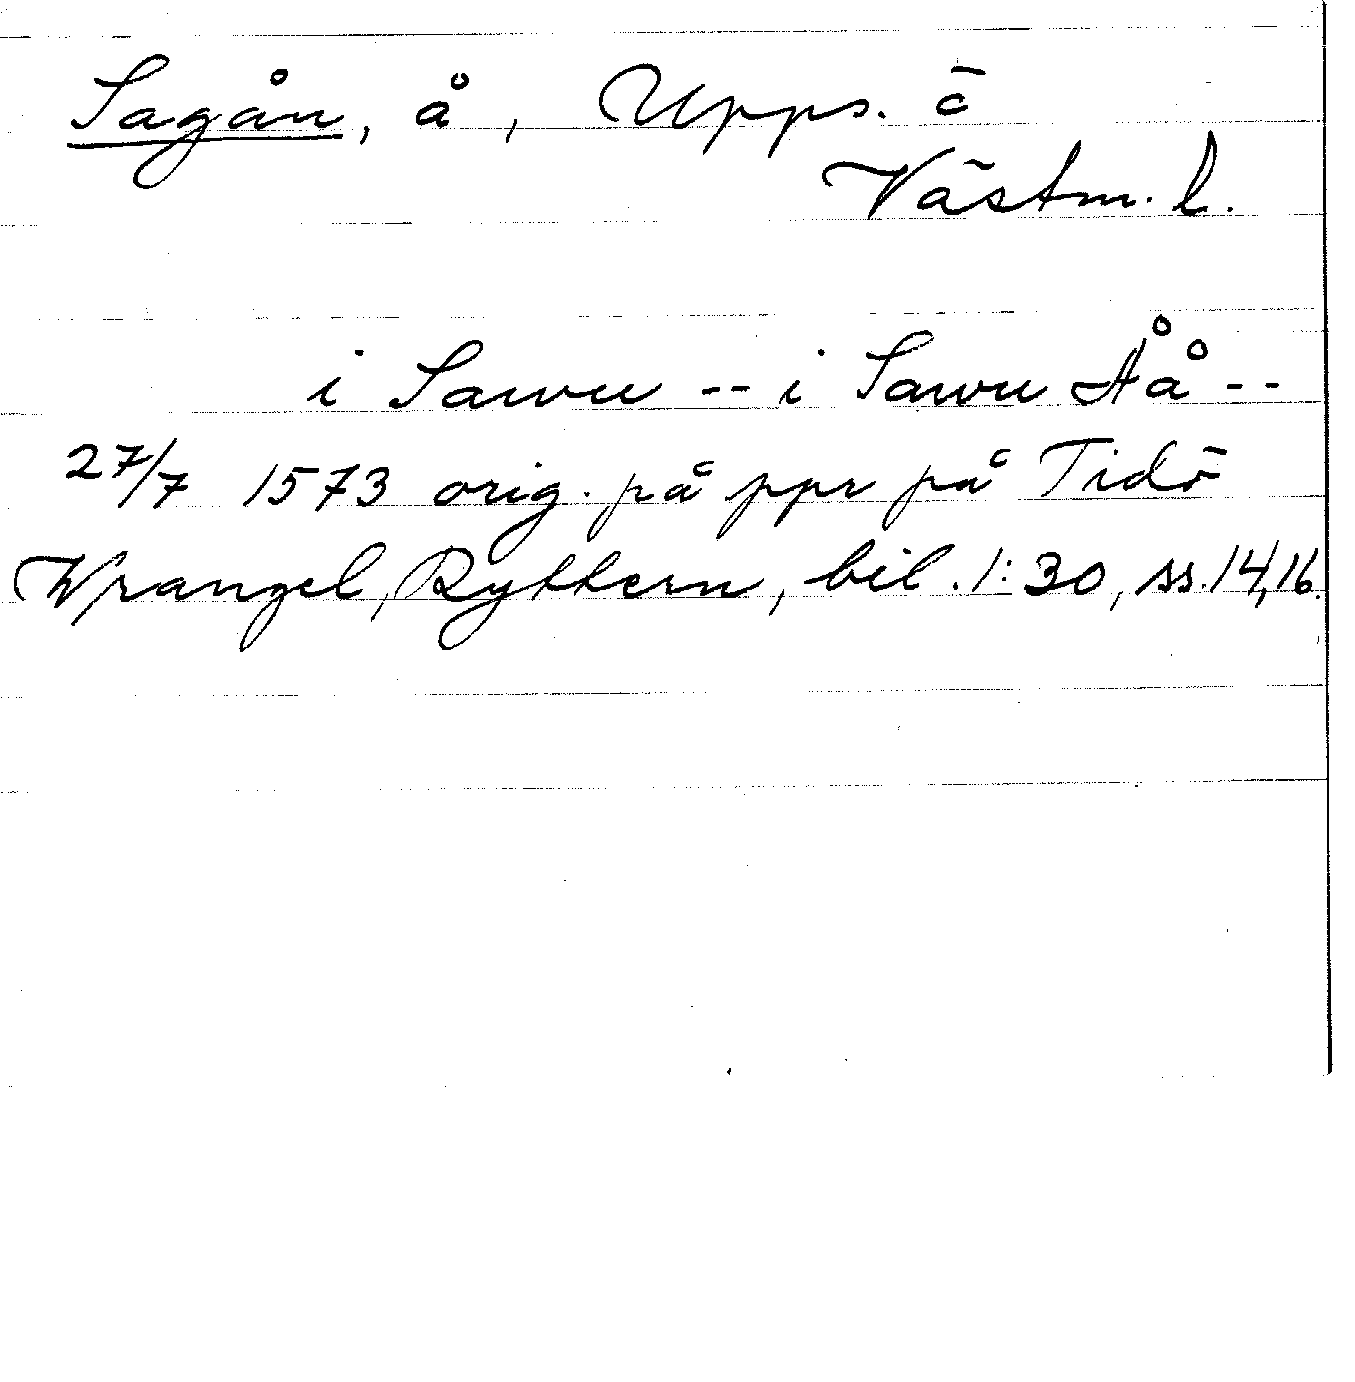 Sagån, å, Upps. o
Västm. l.
i Sawu -- i Sawu Åå --
27/7 1573 orig. på ppr på Tidö
Wrangel, Ryttern, bil. 1:30, ss. 14, 16.